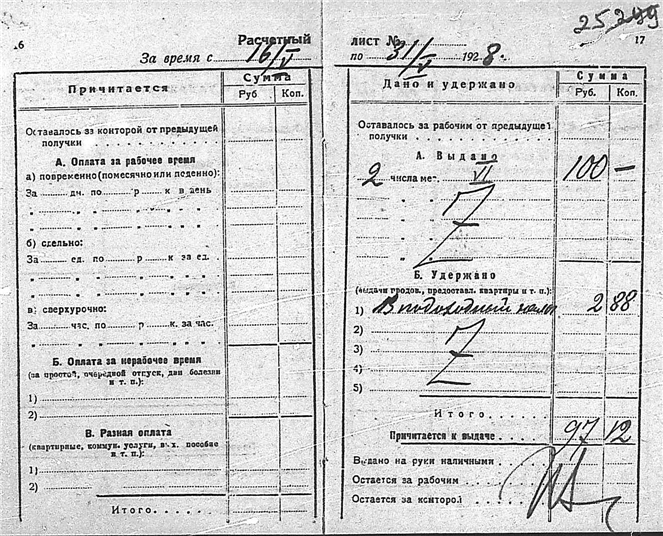 25299
16
Расчетный
За время с 16/V
Причитается
Сумма
Руб Коп.
Оставалось за конторой от предыдущей
получки
А. Оплата за рабочее время
а) повременно (помесячно или педенно):
За дн. по р к в день
„ „ „ „ „ „
„ „ „ „ „ „
б) сдельно:
За ед. по р к за ед.
„ „ „ „ „ „
„ „ „ „ „ „
в) сверхурочно:
За час. по р к. за час.
„ „ „ „ „ „
Б. Оплата за нерабочее время
(за простой, очередной отпуск, дни болезни
и т. п.):
1)
2)
В. Разная оплата
(квартирные, коммун. услуги, вых. пособие
и т. п.):
1)
2)
Итого
17
лист №
по 31/V 1928.
Дано и удержано
Сумма
Руб. Коп.
Оставалось за рабочим от предыдущей
получки
А. Выдано
2 числа м-ц. VII 100 —
„ „ „
„ „ „
„ „ „
Б. Удержано
(выдачи продов., предоставл. квартиры и т. п.):
1) подоходный налог 2 88
2)
3)
4)
5)
Итого
Причитается к выдаче 97 12
Выдано на руки наличными
Остается за рабочим
Остается за конторой